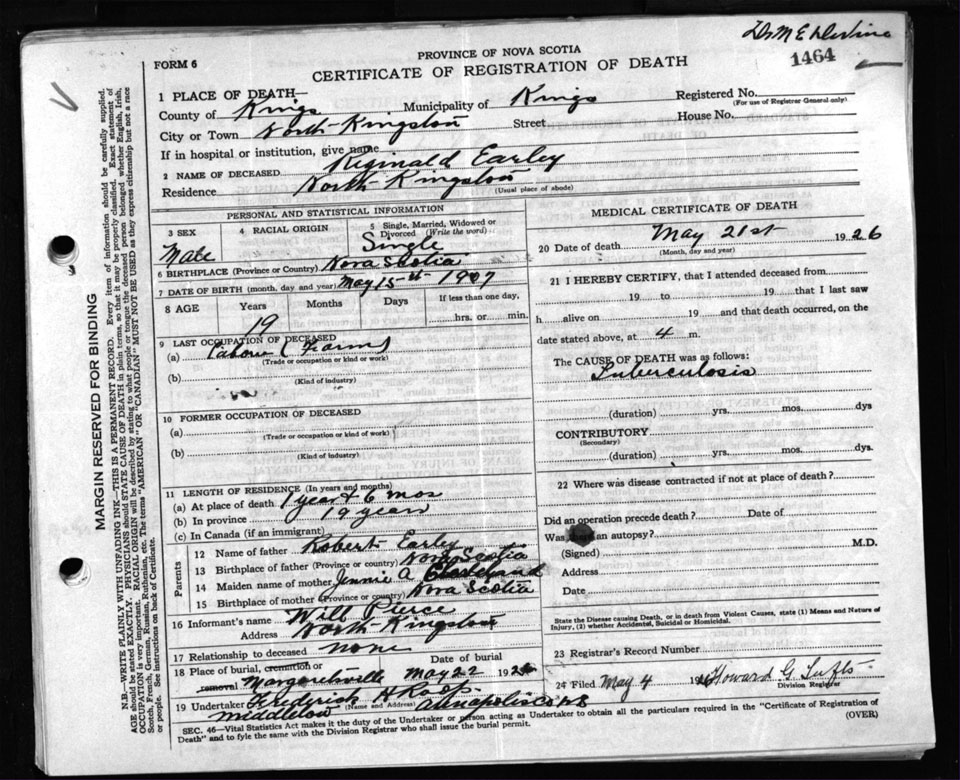 1464
PROVINCE OF NOVA SCOTIA
FORM 6
CERTIFICATE OF REGISTRATION OF DEATH
1 PLACE OF DEATH—
County of Kings Municipality of Kings Registered No.
(For use of Registrar General only)
City or Town North Kingston Street House No.
If in hospital or institution, give name
2 NAME OF DECEASED Reginald Earley
Residence North Kingston
(Usual place of abode)
PERSONAL AND STATISTICAL INFORMATION
3 SEX 4 RACIAL ORIGIN 5 Single, Married, Widowed or Divorced (Write the word)
Male Single
6 BIRTHPLACE (Province or Country) Nova Scotia
7 DATE OF BIRTH (month, day and year) May 15th 1907
8 AGE Years Months Days If less than one day,
19 hrs. or min.
9 LAST OCCUPATION OF DECEASED
(a) (Farm)
(Trade or occupation or kind of work)
(b)
(Kind of industry)
10 FORMER OCCUPATION OF DECEASED
(a)
(Trade or occupation or kind of work)
(b)
(Kind of industry)
11 LENGTH OF RESIDENCE (In years and months)
(a) At place of death 1 year & 6 mos
(b) In province 19 years
(c) In Canada (if an immigrant)
Parents
12 Name of father Robert Earley
13 Birthplace of father (Province or Country) Nova Scotia
14 Maiden name of mother Jennie A
15 Birthplace of mother (Province or Country) Nova Scotia
16 Informant's name Will Pierce
Address North Kingston
17 Relationship to deceased none
18 Place of burial, cremation or removal Date of burial
Margaretsville May 22 1926
19 Undertaker Frederick H
(Name and Address)
Middleton Annapolis Co NS
MEDICAL CERTIFICATE OF DEATH
20 Date of death May 21st 1926
(Month, day and year)
21 I HEREBY CERTIFY, that I attended deceased from
19 to 19 that I last saw
h alive on 19 and that death occurred, on the
date stated above, at 4 m.
The CAUSE OF DEATH was as follows:
Tuberculosis
(duration) yrs. mos. dys
CONTRIBUTORY
(Secondary)
(duration) yrs. mos. dys.
22 Where was disease contracted if not at place of death?
Did an operation precede death? Date of
Was there an autopsy?
(Signed) M.D.
Address
Date
State the Disease causing Death, or in death from Violent Causes, state (1) Means and Nature of
Injury, (2) whether Accidental, Suicidal or Homicidal.
23 Registrar's Record Number
24 Filed May 4 Howard G. Tufts
Division Registrar
SEC. 46—Vital Statistics Act makes it the duty of the Undertaker or person acting as Undertaker to obtain all the particulars required in the "Certificate of Registration of
Death" and to fyle the same with the Division Registrar who shall issue the burial permit.
(OVER)
MARGIN RESERVED FOR BINDING
N.B.—WRITE PLAINLY WITH UNFADING INK—THIS IS A PERMANENT RECORD. Every item of information should be carefully supplied.
AGE should be stated EXACTLY. PHYSICIANS should STATE CAUSE OF DEATH in plain terms, so that it may be properly classified. Exact statement of
OCCUPATION is very important. RACIAL ORIGIN will be described by stating to what people or tongue the deceased person belonged whether English, Irish,
Scotch, French, German, Russian, Ruthenian, etc. The terms "AMERICAN" OR "CANADIAN" MUST NOT BE USED as they express citizenship but not a race
or people. See instructions on back of Certificate.